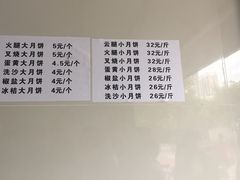 火腿大月饼 5元/个
叉烧大月饼 5元/个
蛋黄大月饼 4.5元/个
洗沙大月饼 4元/个
椒盐大月饼 4元/个
冰桔大月饼 4元/个
云腿小月饼 32元/斤
火腿小月饼 32元/斤
叉烧小月饼 32元/斤
蛋黄小月饼 28元/斤
椒盐小月饼 26元/斤
冰桔小月饼 26元/斤
洗沙小月饼 26元/斤